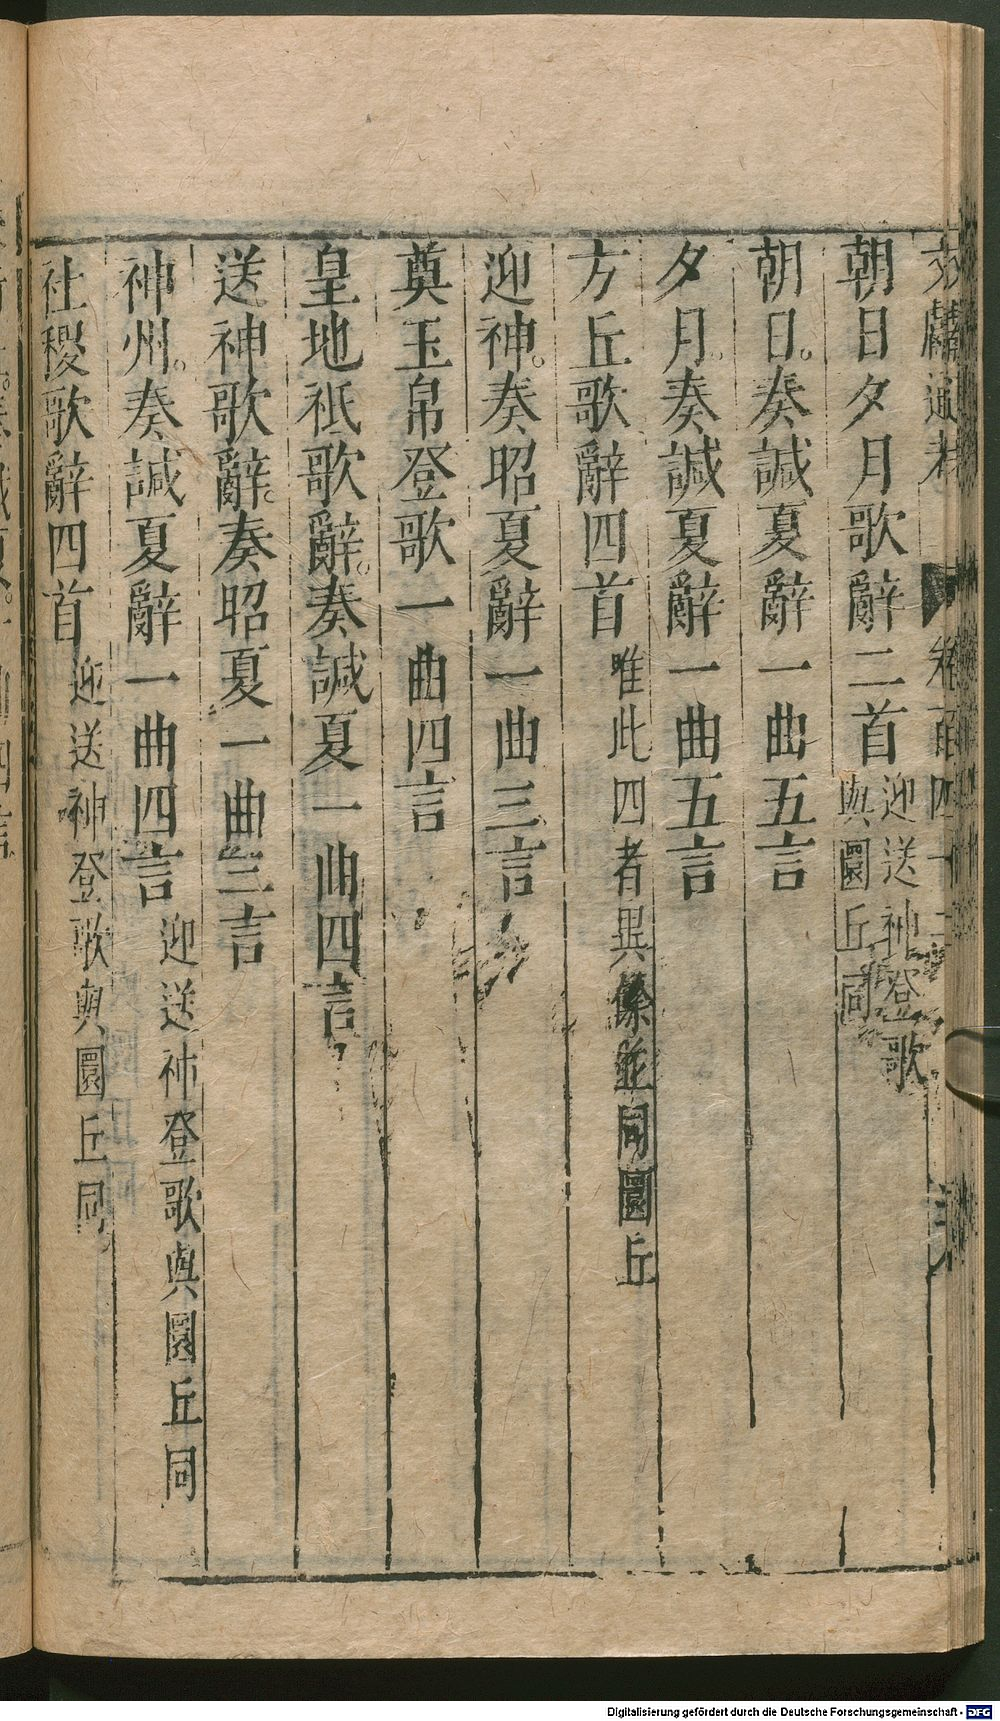 文獻通考 卷百四十三
朝日夕月歌辭二首迎送神登歌與圜丘同
朝日。奏諴夏辭一曲五言
夕月。奏諴夏辭一曲五言
方丘歌辭四首唯此四者異餘並同圜丘
迎神。奏昭夏辭一曲三言
奠玉帛登歌一曲四言
皇地祇歌辭。奏諴夏一曲四言
送神歌辭。奏昭夏一曲三言
神州。奏諴夏辭一曲四言迎送神登歌與圜丘同
社稷歌辭四首迎送神登歌與圜丘同
Digitalisierung gefördert durch die Deutsche Forschungsgemeinschaft - DFG